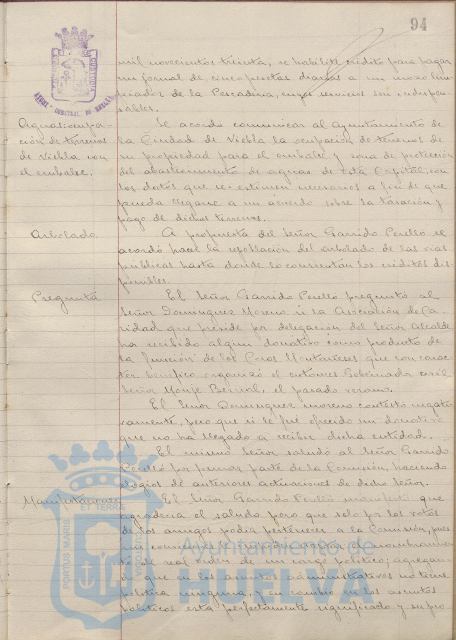 94
mil novecientos treinta, se habilite crédito para pagar
un jornal de cinco pesetas diarias a un mozo lim-
piador de la Pescadería, cuyos servicios son indispen-
sables.
Aguas: ocupa-
ción de terrenos
de Niebla con
el embalse.
Se acordó comunicar al Ayuntamiento de
la Ciudad de Niebla la ocupación de terrenos de
su propiedad para el embalse y zona de protección
del abastecimiento de aguas de esta Capital, con
los datos que se estimen necesarios a fin de que
pueda llegarse a un acuerdo sobre la tasación y
pago de dichos terrenos.
Arbolado
A propuesta del Señor Garrido Perelló se
acordó hacer la repoblación del arbolado de las vías
públicas hasta donde lo consientan los créditos dis-
ponibles.
Pregunta
El Señor Garrido Perelló preguntó al
Señor Dominguez Moreno si la Asociación de Ca-
ridad que preside por delegación del Señor Alcalde
ha recibido algún donativo como producto de
la función de los Coros Montañeses que con carac-
ter benéfico organizó el entonces Gobernador civil
Señor Monje Bernal, el pasado verano.
El Señor Dominguez Moreno contestó negati-
vamente, pero que si le fué ofrecido un donativo
que no ha llegado a recibir dicha entidad.
El mismo Señor saludó al Señor Garrido
Perelló por formar parte de la Comisión, haciendo
elogios de anteriores actuaciones de dicho Señor.
Manifestaciones
El Señor Garrido Perelló manifestó que
agradecía el saludo pero que solo por los votos
de los amigos podía pertenecer a la Comisión, pues
de real orden de un cargo político; agregan-
do que en los asuntos administrativos no tiene
política ninguna, y en cambio en los asuntos
políticos está perfectamente significado y su pro
Ayuntamiento de
HUELVA
PORTUS MARIS
ET TERRAE